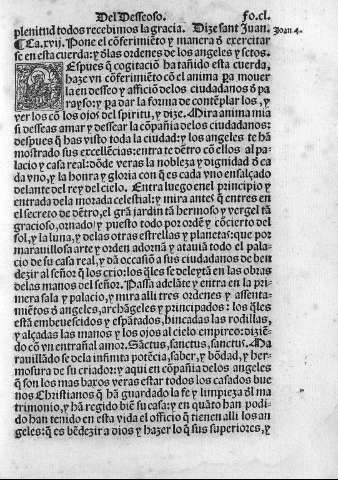 Del Desseoso. fo.cl.
plenitud todos recebimos la gracia. Dize sant Juan. Joan 4.
¶Ca.xvij. Pone el cõferimiẽto y manera d̃ exercitar
se en esta cuerda: y d̃las ordenes de los angeles y sctos.
Despues q̃ cogitaciõ ha tañido esta cuerda,
haze vn cõferimiẽto cõ el anima pa mouer
la en desseo y affició delos ciudadanos d̃ pa
rayso: y pa dar la forma de contẽplar los, y
ver los cõ los ojos del spiritu, y dize. Mira anima mia
si desseas amar y dessear la cõpañia delos ciudadanos:
despues q̃ has visto toda la ciudad: y los angeles te hã
mostrado sus excellẽcias: entra te dẽtro cõ ellos al pa-
lacio y casa real: dõde veras la nobleza y dignidad d̃ ca
da vno, y la honra y gloria con q̃ es cada vno ensalçado
delante del rey del cielo. Entra luego enel principio y
entrada dela morada celestial: y mira antes q̃ entres en
el secreto de dẽtro, el grã jardin tã hermoso y vergel tã
gracioso, ornado y puesto todo por ordẽ y cõcierto del
sol, y la luna, y delas otras estrellas y planetas: que por
marauillosa arte y orden adornã y atauiã todo el pala-
cio de su casa real, y dã occasiõ a sus ciudadanos de ben
dezir al señor q̃ los crio: los q̃les se deleytã en las obras
delas manos del señor. Passa adelãte y entra en la pri
mera sala y palacio, y mira alli tres ordenes y assenta-
miẽtos d̃ angeles, archãgeles y principados: los q̃les
està embeuescidos y espãtados, hincadas las rodillas,
y alçadas las manos y los ojos al cielo empireo: diziẽ-
do cõ vn entrañal amor. Sãctus, sanctus, sanctus. Ma
rauillãdo se dela infinita potẽcia, saber, y bõdad, y her-
mosura de su criador: y aqui en cõpañia delos angeles
q̃ son los mas baxos veras estar todos los casados bue
nos Christianos q̃ hã guardado la fe y limpieza d̃l ma
trimonio, y hã regido biẽ su casa: y en quãto han podi-
do han tenido en esta vida el officio q̃ tienen alli los an
geles: q̃ es bẽdezir a dios y hazer lo q̃ sus superiores, y